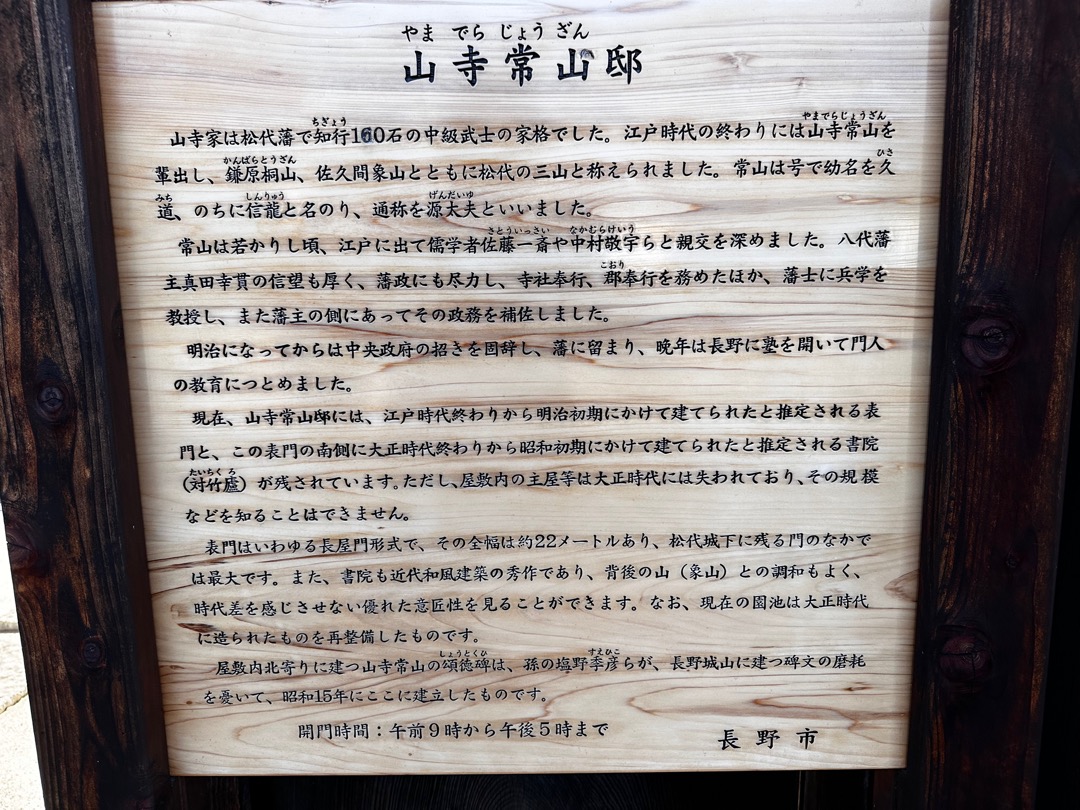 やまでらじょうざん
山寺常山邸
ちぎょう やまでらじょうざん
山寺家は松代藩で知行160石の中級武士の家格でした。江戸時代の終わりには山寺常山を
かんばらとうざん ひさ
輩出し、鎌原桐山、佐久間象山とともに松代の三山と称えられました。常山は号で幼名を久
みち しんりゅう げんだいゆ
道、のちに信龍と名のり、通称を源太夫といいました。
さとういっさい なかむらけいう
常山は若かりし頃、江戸に出て儒学者佐藤一斎や中村敬宇らと親交を深めました。八代藩
こおり
主真田幸貫の信望も厚く、藩政にも尽力し、寺社奉行、郡奉行を務めたほか、藩士に兵学を
教授し、また藩主の側にあってその政務を補佐しました。
明治になってからは中央政府の招きを固辞し、藩に留まり、晩年は長野に塾を開いて門人
の教育につとめました。
現在、山寺常山邸には、江戸時代終わりから明治初期にかけて建てられたと推定される表
門と、この表門の南側に大正時代終わりから昭和初期にかけて建てられたと推定される書院
たいちくろ
（対竹廬）が残されています。ただし、屋敷内の主屋等は大正時代には失われており、その規模
などを知ることはできません。
表門はいわゆる長屋門形式で、その全幅は約22メートルあり、松代城下に残る門のなかで
は最大です。また、書院も近代和風建築の秀作であり、背後の山（象山）との調和もよく、
時代差を感じさせない優れた意匠性を見ることができます。なお、現在の園池は大正時代
に造られたものを再整備したものです。
しょうとくひ すえひこ
屋敷内北寄りに建つ山寺常山の頌徳碑は、孫の塩野季彦らが、長野城山に建つ碑文の磨耗
を憂いて、昭和15年にここに建立したものです。
開門時間：午前9時から午後5時まで
長野市